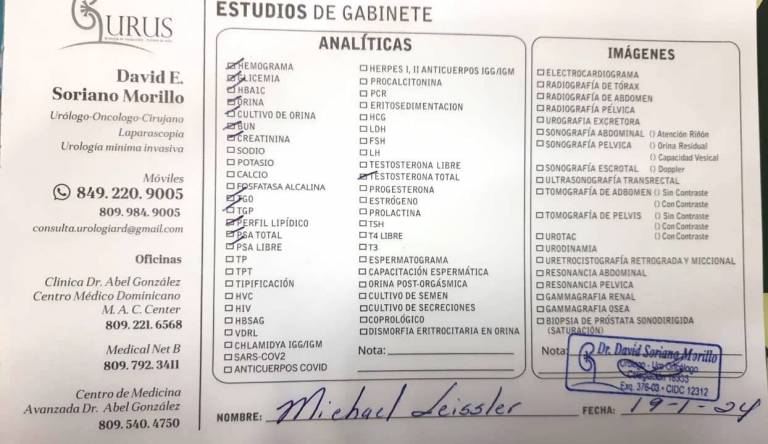 URUS
David E.
Soriano Morillo
Urólogo-Oncologo-Cirujano
Laparascopia
Urología mínima invasiva
Móviles
849. 220. 9005
809. 984. 9005
consulta.urologiard@gmail.com
Oficinas
Clínica Dr. Abel González
Centro Médico Dominicano
M. A. C. Center
809. 221. 6568
Medical Net B
809. 792. 3411
Centro de Medicina
Avanzada Dr. Abel González
809. 540. 4750
ESTUDIOS DE GABINETE
ANALÍTICAS
HEMOGRAMA
GLICEMIA
HBA1C
ORINA
CULTIVO DE ORINA
BUN
CREATININA
SODIO
POTASIO
CALCIO
FOSFATASA ALCALINA
TGO
TGP
PERFIL LIPÍDICO
PSA TOTAL
PSA LIBRE
TP
TPT
TIPIFICACIÓN
HVC
HIV
HBSAG
VDRL
CHLAMIDYA IGG/IGM
SARS-COV2
ANTICUERPOS COVID
HERPES I, II ANTICUERPOS IGG/IGM
PROCALCITONINA
PCR
ERITOSEDIMENTACION
HCG
LDH
FSH
LH
TESTOSTERONA LIBRE
TESTOSTERONA TOTAL
PROGESTERONA
ESTRÓGENO
PROLACTINA
TSH
T4 LIBRE
T3
ESPERMATOGRAMA
CAPACITACIÓN ESPERMÁTICA
ORINA POST-ORGÁSMICA
CULTIVO DE SEMEN
CULTIVO DE SECRECIONES
COPROLÓGICO
DISMORFIA ERITROCITARIA EN ORINA
Nota:
IMÁGENES
ELECTROCARDIOGRAMA
RADIOGRAFÍA DE TÓRAX
RADIOGRAFÍA DE ABDOMEN
RADIOGRAFÍA PÉLVICA
UROGRAFIA EXCRETORA
SONOGRAFÍA ABDOMINAL () Atención Riñón
SONOGRAFÍA PELVICA () Orina Residual
() Capacidad Vesical
SONOGRAFÍA ESCROTAL () Doppler
ULTRASONOGRAFÍA TRANSRECTAL
TOMOGRAFÍA DE ADBOMEN () Sin Contraste
() Con Contraste
TOMOGRAFÍA DE PELVIS () Sin Contraste
() Con Contraste
UROTAC () Con Contraste
URODINAMIA
URETROCISTOGRAFÍA RETROGRADA Y MICCIONAL
RESONANCIA ABDOMINAL
RESONANCIA PELVICA
GAMMAGRAFIA RENAL
GAMMAGRAFIA OSEA
BIOPSIA DE PRÓSTATA SONODIRIGIDA
(SATURACIÓN)
Nota:
Dr. David Soriano Morillo
Urólogo - Uro Oncólogo
Exq. 376-03 • CIDC 12312
NOMBRE: Michael Leissler FECHA: 19-1-24